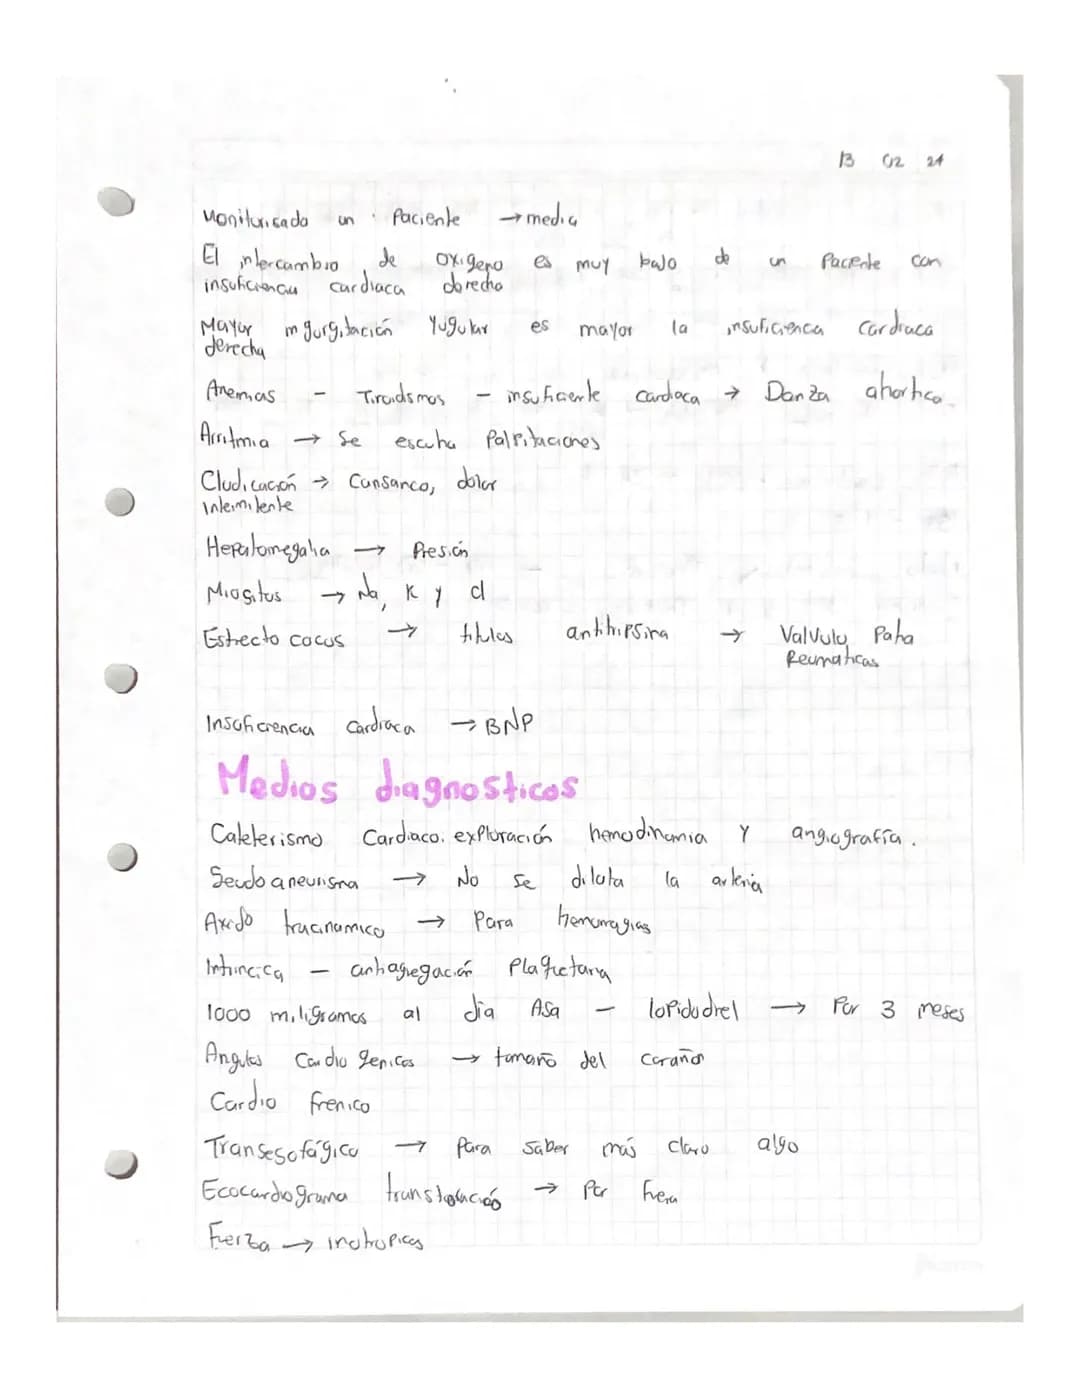 13 02 24
Monitorisado un Paciente → media
El intercambio de oxigeno es muy bajo de un Paciente con
insuficiencia cardiaca derecha
Mayor ingurgitación Yugular es mayor la insuficiencia Cardiaca
derecha
Anemias - Tiroidismos - insuficiente cardiaca → Danza ahortica
Arritmia → Se escuha Palpitaciones
Cludicación → Cansanco, dolor
Intermitente
Hepatomegalia → Presión
Miositos → Na, K y cl
Estrecto cocus → titulos antihipsina → Valvulo Patia
Reumaticas
Insuficiencia Cardiaca → BNP
Medios diagnosticos
Cateterismo Cardiaco. exploración hemodinamia Y angiografía.
Seudo aneurisma → No se dilata la arteria
Axido tracinamico → Para hemorragias
Intrincica - antiagregación Plaquetaria
1000 miligramos al día Asa - lopidodrel → Por 3 meses
Angulos Cardio genicos → tamaño del Corañon
Cardio frenico
Transesofágico → Para saber más claro algo
Ecocardiograma → Por fuera
Fuerza → inotropicos